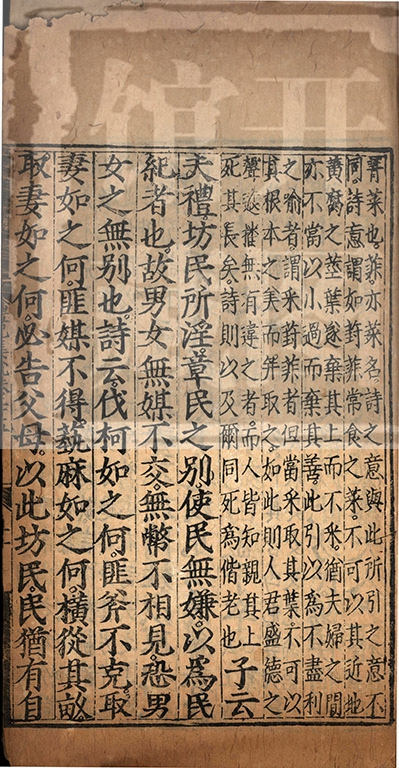 菁菜也菲亦菜名詩之意與此所引之意不
同詩意謂如葑菲常食之菜不可以其近地
黃腐之莖葉遂棄其上而不采猶夫婦之間
亦不當以小過而棄其善此引以爲不盡利
之喻者謂采葑菲者但當采取其葉不可以
其根本之美而并取之如此則人君盛德之
聲遠播無有違之者而人皆知親其上
死其長矣詩則以及爾同死爲偕老也
子云
夫禮坊民所淫章民之别使民無嫌以爲民
紀者也故男女無媒不交無幣不相見恐男
女之無别也詩云伐柯如之何匪斧不克取
妻如之何匪媒不得蓺麻如之何橫從其畝
取妻如之何必告父母以此坊民民猶有自
館